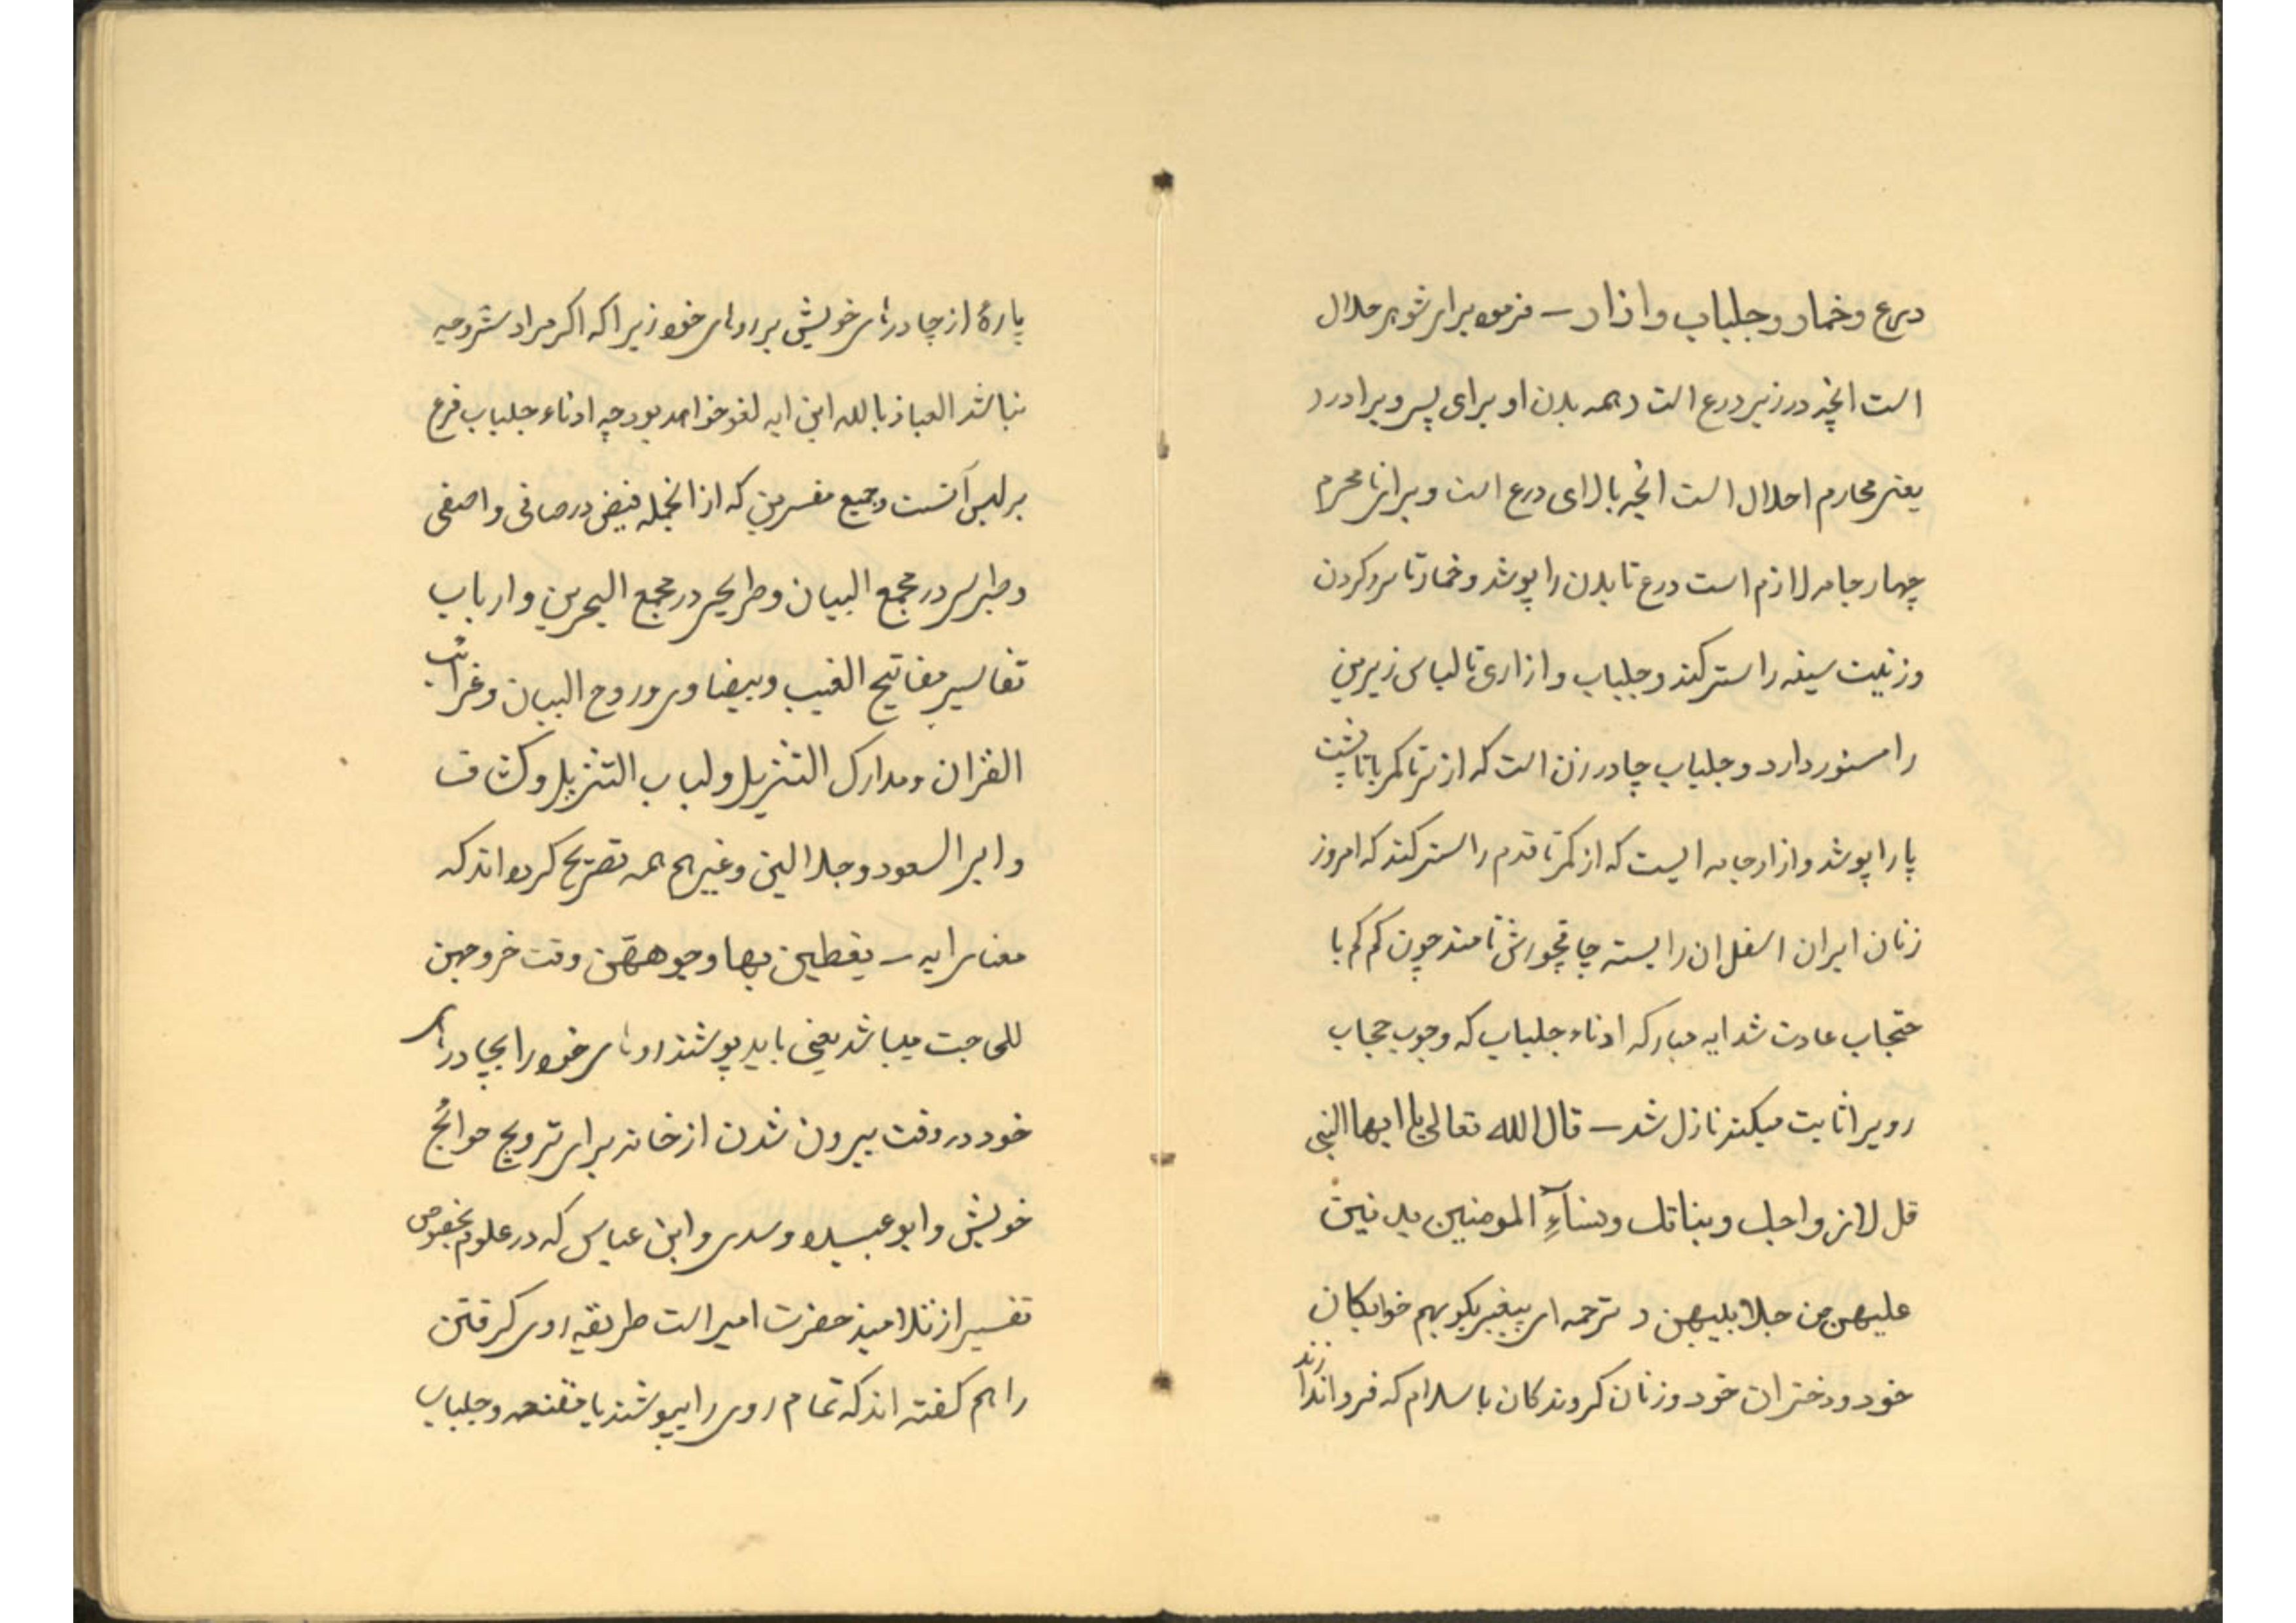 درع و خمار و جلباب و ازار — فرموده برای شوهر حلال
است انچه در زیر درع است و همه بدن او برای پسر و برادر و
یعنی محارم احلال است انچه بالای درع است و برای نامحرم
چهار جامه لازم است درع تا بدن را پوشد و خمار تا سر و کردن
و زینت سینه را ستر کند و جلباب و ازاری تا لباس زیرین
را مستور دارد و جلباب چادر زن است که از سر تا کمر یا تا پشت
پا را پوشد و ازار جامه ایست که از کمر تا قدم را ستر کند که امروز
زنان ایران اسفل ان را بسته چاقچورش نامند چون کم کم با
حتجاب عادت شد ایه مبارکه ادناء جلباب که وجوب حجاب
رویرا ثابت میکند نازل شد — قال الله تعالی یا ایها النبی
قل لازواجک و بناتک و نساۤءِ المومنین یدنین
علیهن من جلابیبهن د ترجمه ای پیغمبر بکو بهم خوابکان
خود و دختران خود و زنان کروندکان باسلام که فرو اندازند
پارهٔ از چادرهای خویش بر روهای خود زیرا که اکر مراد ستر وجه
نباشد العیاذ بالله این ایه لغو خواهد بود چه ادناء جلباب فرع
بر لبس آنست و جمیع مفسرین که از انجمله فیض در صافی و اصفی
و طبرسی در مجمع البیان و طریحی در مجمع البحرین و ارباب
تفاسیر مفاتیح الغیب و بیضاوی و روح البیان و غرائب
القران و مدارک التنزیل و لباب التنزیل و کشاف
و ابو السعود و جلالین و غیرهم همه تصریح کرده اند که
معنای ایه — یغطین بها وجوههّن وقت خروجهن
للحاجت میباشد یعنی باید پوشند روهای خود را بچادرهای
خود در وقت بیرون شدن از خانه برای ترویج حوائج
خویش و ابو عبیده و سدی و ابن عباس که در علوم بخصوص
تفسیر از تلامیذ حضرت امیر است طریقه روی کرفتن
را هم کفته اند که تمام روی را بپوشند با مقنعه و جلباب